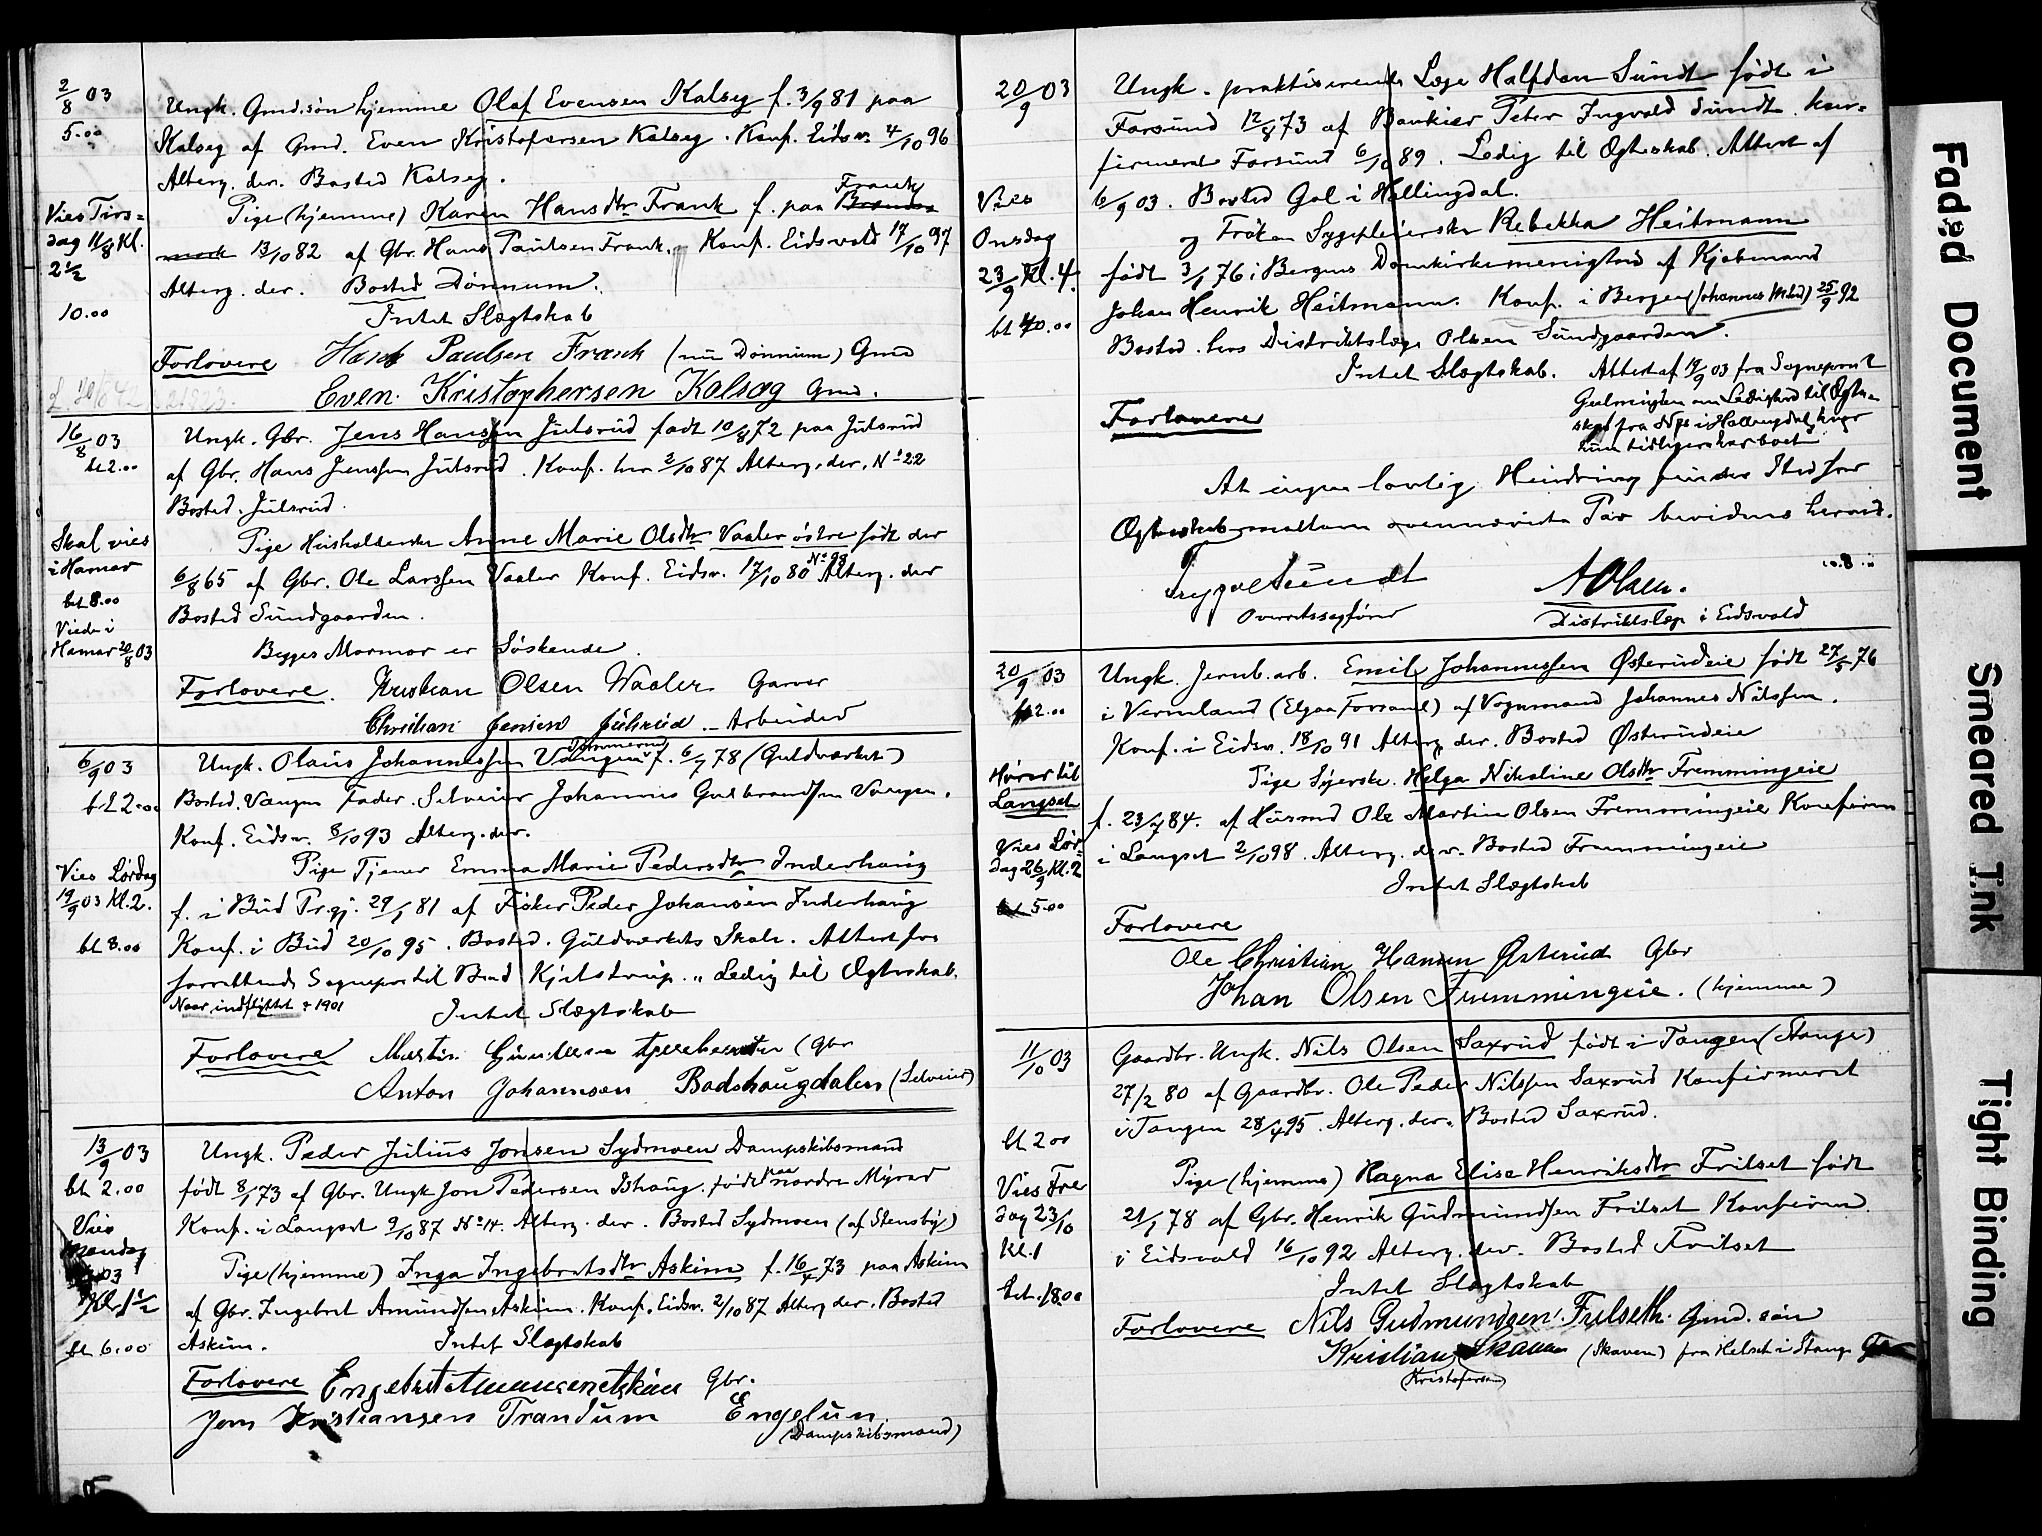 2/8 03
5.00
Ungk. Gmd.søn hjemme Olaf Evensen Kalseg f. 3/9 81 paa
Kalseg af Gmd. Even Kristofersen Kalseg. Konf. Eidsv. 4/10 96
Alterg. der. Bosted Kalseg.
Vies Tirs=
dag 11/8 Kl.
2 1/2
10.00
Pige (hjemme) Karen Hansdtr Frank f. paa Frank
13/10 82 af Gbr. Hans Paulsen Frank. Konf. Eidsvold 17/10 97
Alterg. der. Bosted Dönnum.
Intet Slægtskab
Forlovere Hans Paulsen Frank (nu Dönnum) Gmd
Even Kristophersen Kalsæg Gmd.
16/8 03
bt 2.00
Ungk. Gbr. Jens Hanssen Julsrud født 10/8 72 paa Julsrud
af Gbr. Hans Jenssen Julsrud. Konf. her 2/10 87 Alterg. der. No 22
Bosted. Julsrud.
Skal vies
i Hamar
bet 8.00
Viede i
Hamar 20/8 03
Pige Husholderske Anne Marie Olsdtr Vaaler östre født der
6/8 65 af Gbr. Ole Larssen Vaaler Konf. Eidsv. 17/10 80 No 98 Alterg. der
Bosted Sundgaarden.
Begges Mormor er Söskende.
Forlovere. Kristian Olsen Waaler Garver
Christian Jensen Julsrud - Arbeider
6/9 03
bt 2.00
Ungk. Olaus Johannessen Vangen Tømmerud f. 6/7 78 (Guldværket)
Bosted. Vangen Fader. Selveier Johannes Gulbrandsen Vangen.
Konf. Eidsv. 8/10 93 Alterg. der.
Vies Lørdag
19/9 03 Kl. 2.
bt 8.00
Pige Tjener Emma Marie Pedersdtr Inderhaug
f. i Bud Prgj. 29/1 81 af Fisker Peder Johansen Inderhaug
Konf. i Bud 20/10 95. Bosted. Guldværkets Skole. Attest fra
forrettende Sogneprest til Bud Kjelstrup. „ Ledig til Ægteskab.
Naar indflyttet? 1901
Intet Slægtskab
Forlovere Martin (Gbr
Anton Johannsen Badshaugdalen (Selveier)
13/9 03
bt 2.00
Ungk. Peder Julius Jonsen Sydmoen Dampskibsmand
født 8/1 73 af Gbr. Ungk Jon Pedersen Ishaug. født paa nordre Myrer
Konf. i Langset 9/10 87 No 14. Alterg. der. Bosted Sydmoen (af Stensby)
Vies
Mandag
03
Kl. 1 1/2
bt 6.00
Pige (hjemme) Inga Ingebretsdtr Askim f. 16/4 73 paa Askim
af Gbr. Ingebret Amundsen Askim. Konf. Eidsv. 2/10 87 Alterg der. Bosted
Askim. Intet Slægtskab
Forlovere Engebret Amunsen Askim Gbr.
Jens Kristiansen Trandum Engelun.
(Dampskibsmand)
20/9 03
Ungk. praktiserende Læge Halfdan Sundt født i
Farsund 12/8 73 af Bankier Peter Ingvald Sundt. kon=
firmeret Farsund 6/10 89. Ledig til Ægteskab. Attest af
6/9 03. Bosted Gol i Hallingdal.
Vies
Onsdag
23/9 Kl. 4.
bt 40.00
og Frøken Sygepleierske Rebekka Heitmann
født 3/1 76 i Bergens Domkirkemenighed af Kjøbmand
Johan Henrik Heitmann. Konf. i Bergen (Johannes Mhd) 25/9 92
Bosted. hos Distriktslæge Olsen Sundgaarden.
Intet Slægtskab. Attest af 17/9 03 fra Sogneprest
Gulmigten om Ledighed til Ægte=
skab fra Næs i Hallingdal, hvor
hun tidligere har boet
Forlovere
At ingen lovlig Hindring finder Sted for
Ægteskab mellem ovennævnte Par bevidnes herved.
Trygve Sundt
Overretssagfører
A Olsen.
Distriktslæge i Eidsvold
20/9 03
bt 2.00
Ungk. Jernb. arb. Emil Johannessen Østerudeie født 27/5 76
i Vermland (Elgaa Forsaml) af Vognmand Johannes Nilssen.
Konf. i Eidsv. 18/10 91 Alterg. der. Bosted Østerudeie
Hører til
Langset
Vies Lør=
dag 26/9 Kl. 2
bt 5.00
Pige Syerske. Helga Nikoline Olsdtr Fremmingeie
f. 23/7 84. af Husmd Ole Martin Olsen Fremmingeie Konfirm
i Langset 2/10 98. Alterg. der. Bosted Fremmingeie
Intet Slægtskab
Forlovere
Ole Christian Hansen Østerud Gbr
Johan Olsen Fremmingeie. (hjemme)
11/10 03
bt 2.00
Gaardbr. Ungk. Nils Olsen Saxrud født i Tangen (Stange)
27/2 80 af Gaardbr. Ole Peder Nilssen Saxrud Konfirmeret
i Tangen 28/4 95. Alterg. der. Bosted Saxrud.
Vies Fre
dag 23/10
Kl. 1
bet. 18.00
Pige (hjemme) Hagna Elise Henriksdtr Fritset født
21/1 78 af Gbr. Henrik Gudmundsen Fritset Konfirm.
i Eidsvold 16/10 92 Alterg. der. Bosted Fritset
Intet Slægtskab
Forlovere Nils Gudmundsen Fritseth. Gmd. søn
Kristian Skaven (Skaven) fra Helset i Stange
(Kristofersen)
Faded Document
Smeared Ink
Tight Binding